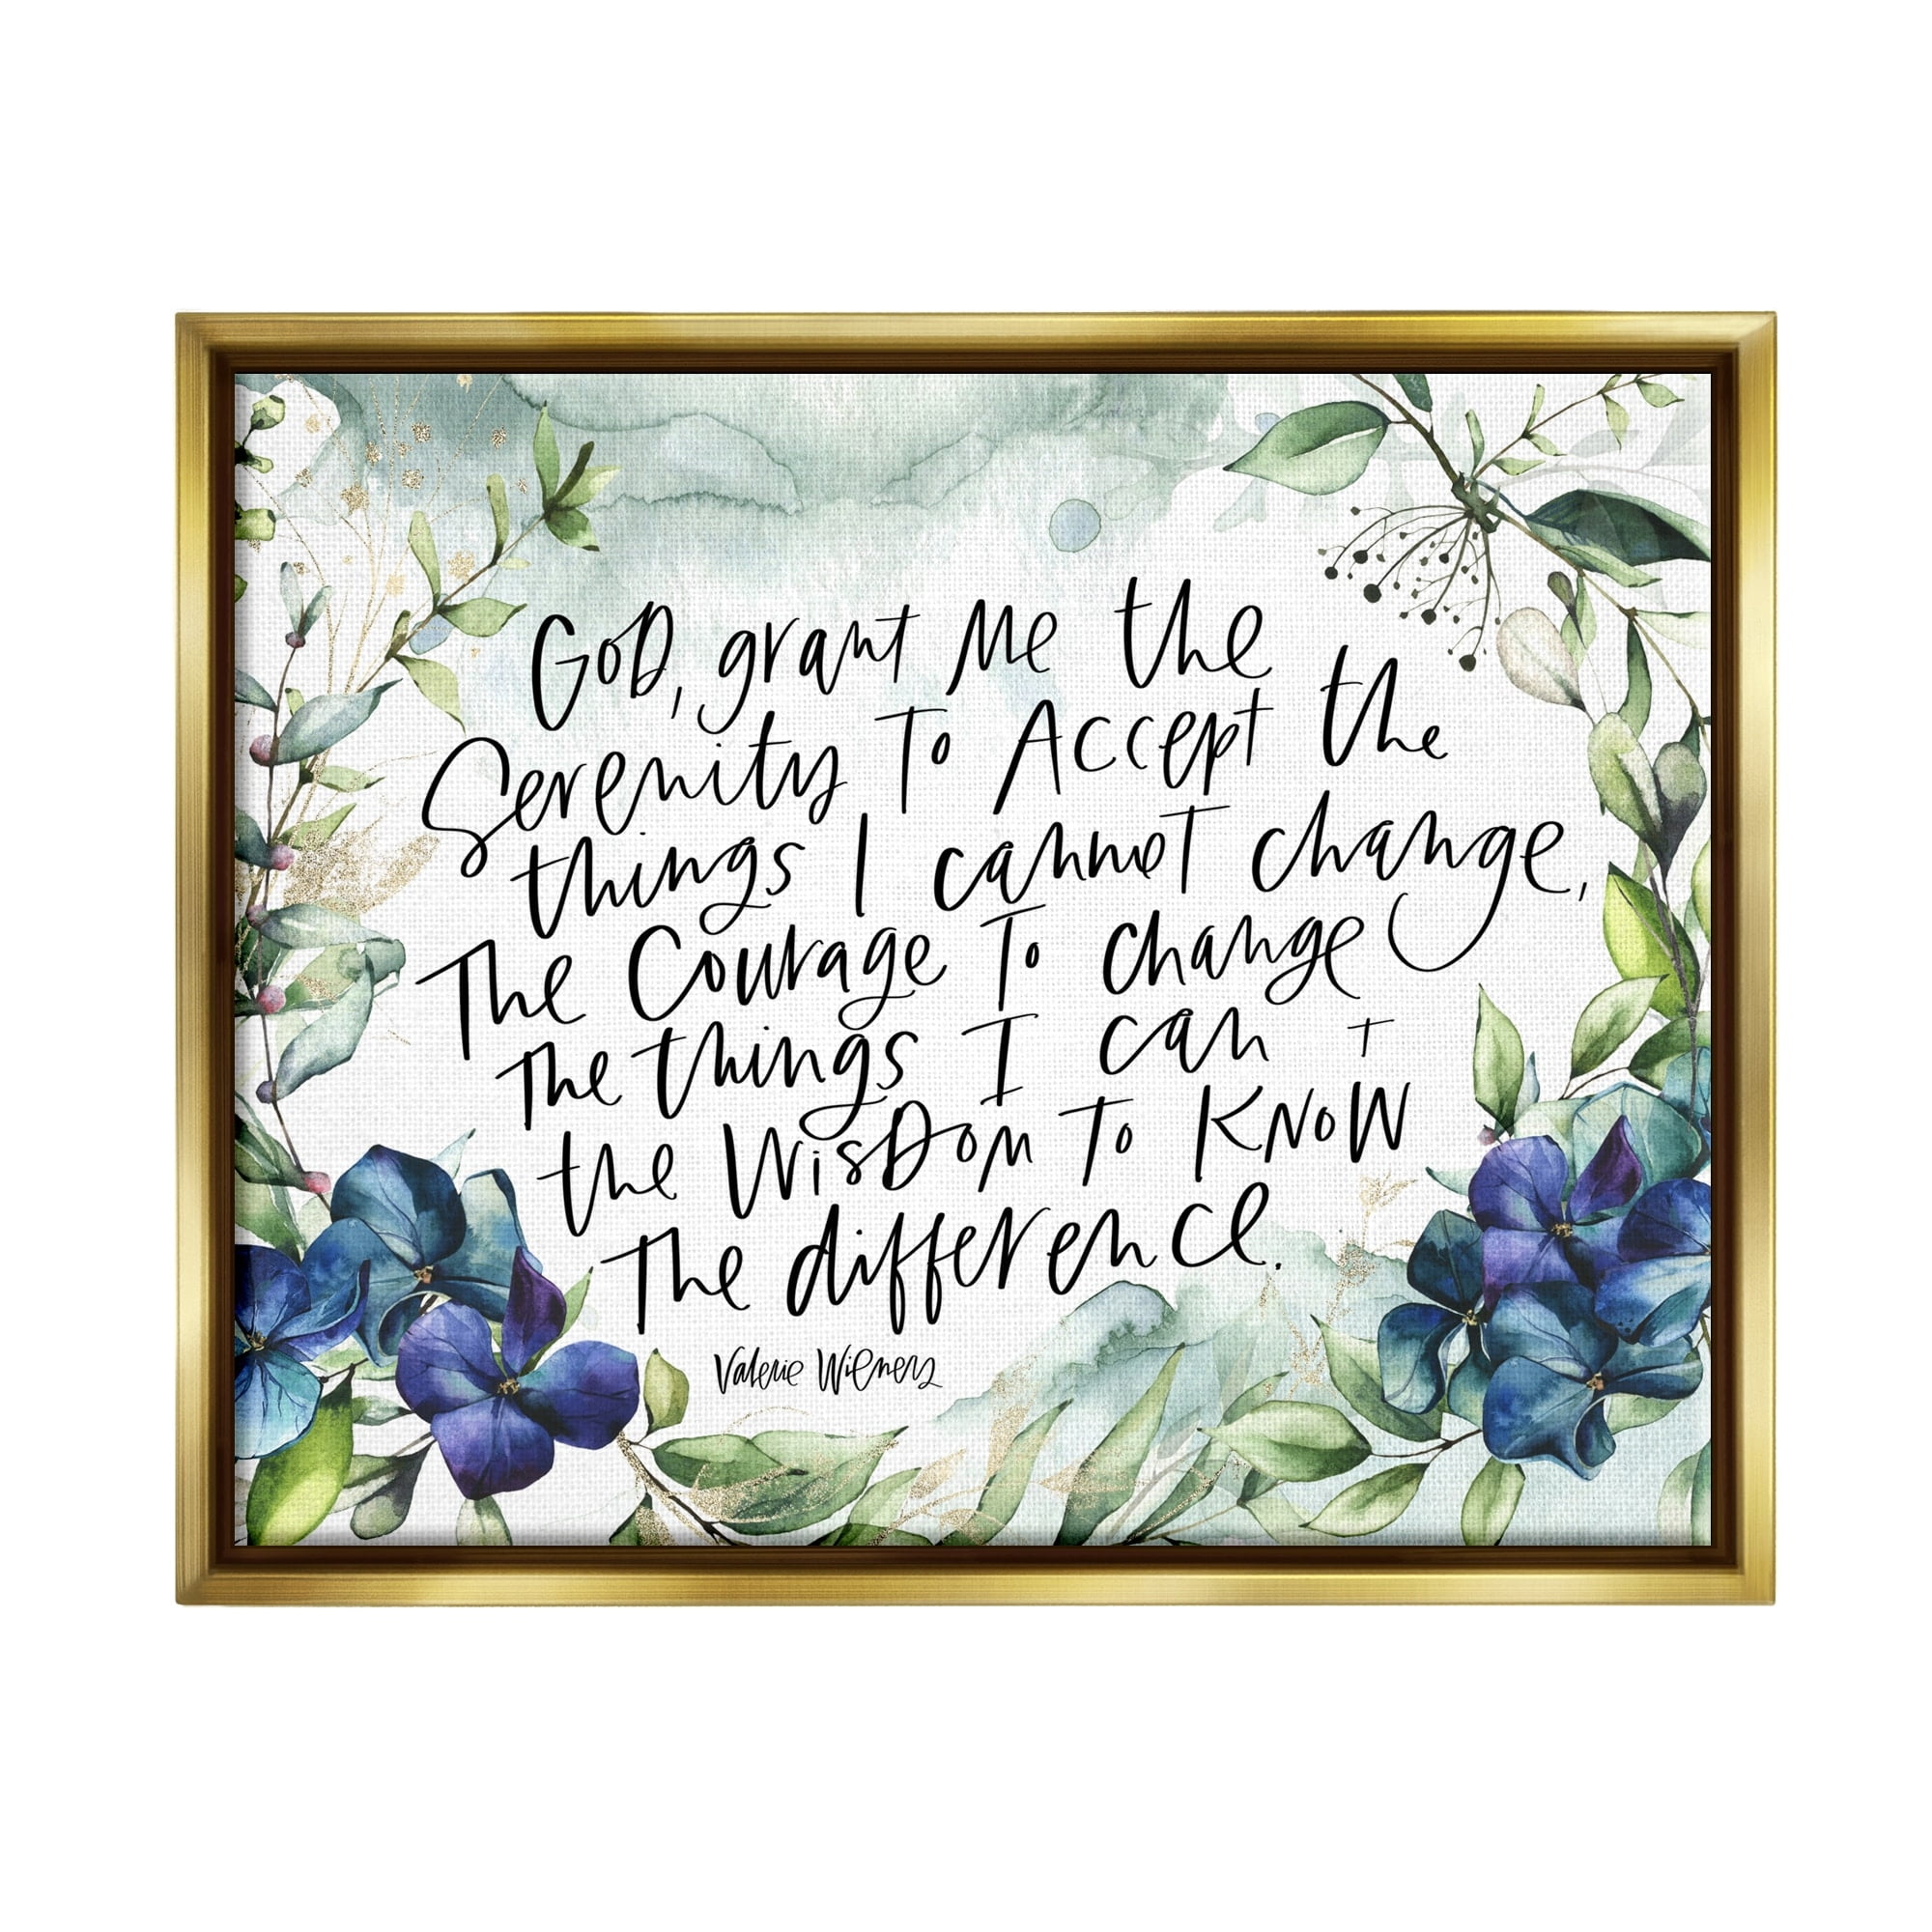 God, grant Me the
Serenity To Accept the
things I cannot change,
The Courage To change
The things I can +
the Wisdom To Know
The difference.
Valerie Wieners